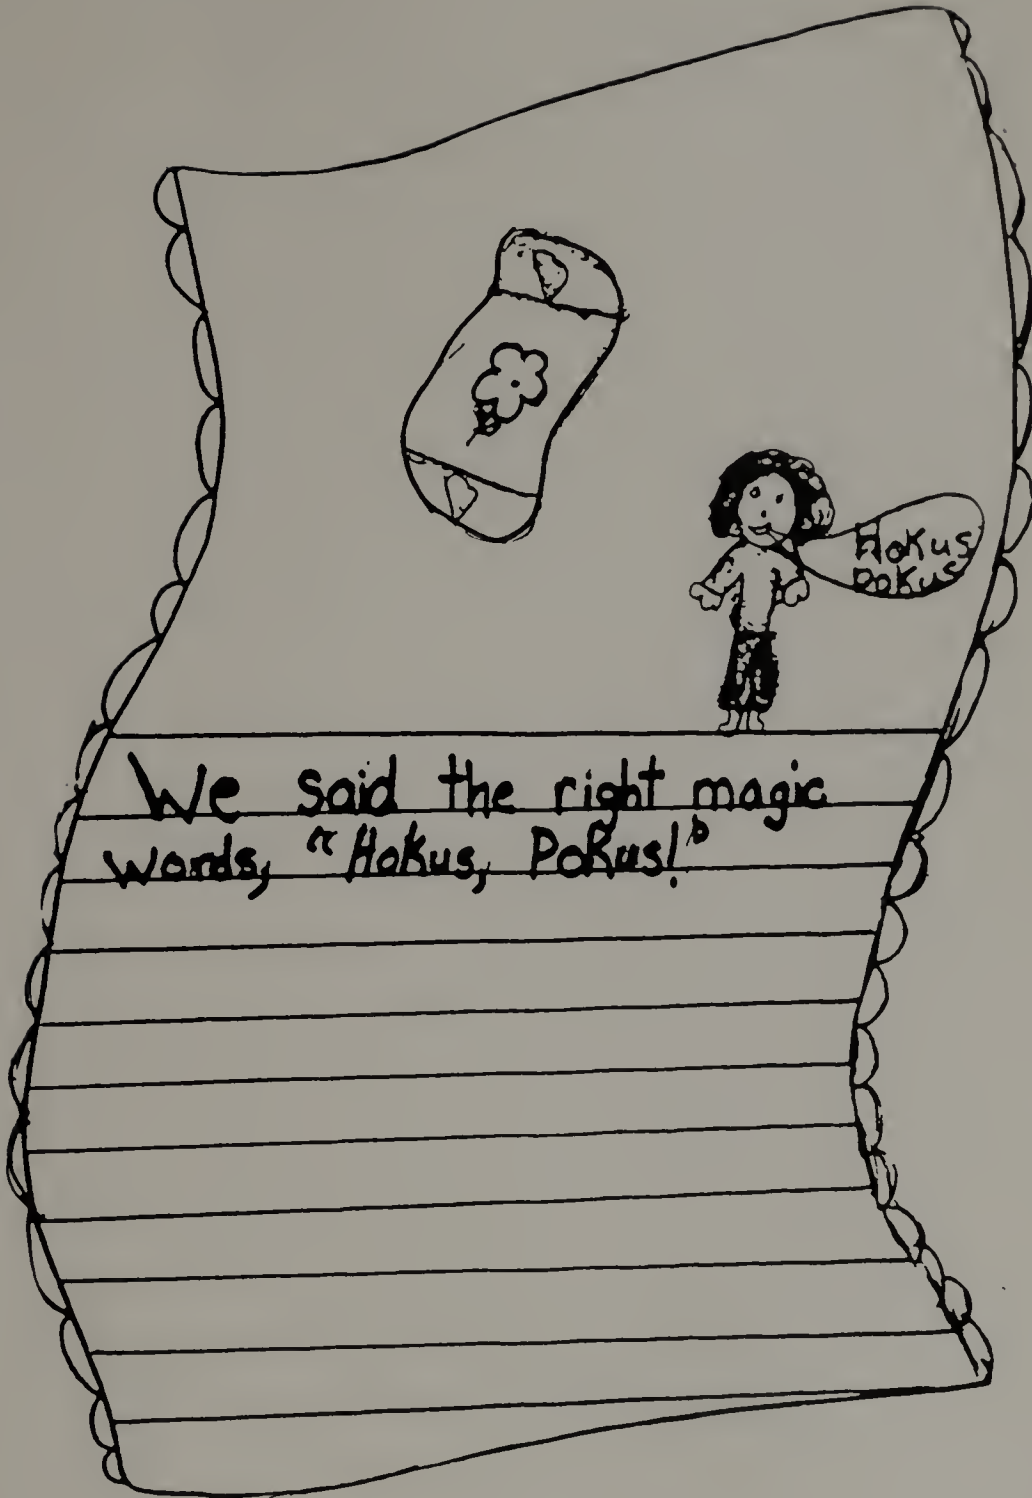 HoKus
PoKus
We said the right magic
words, "HoKus, PoKus!"